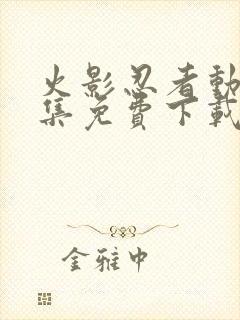 火影忍者動
集免費下載
金雅中